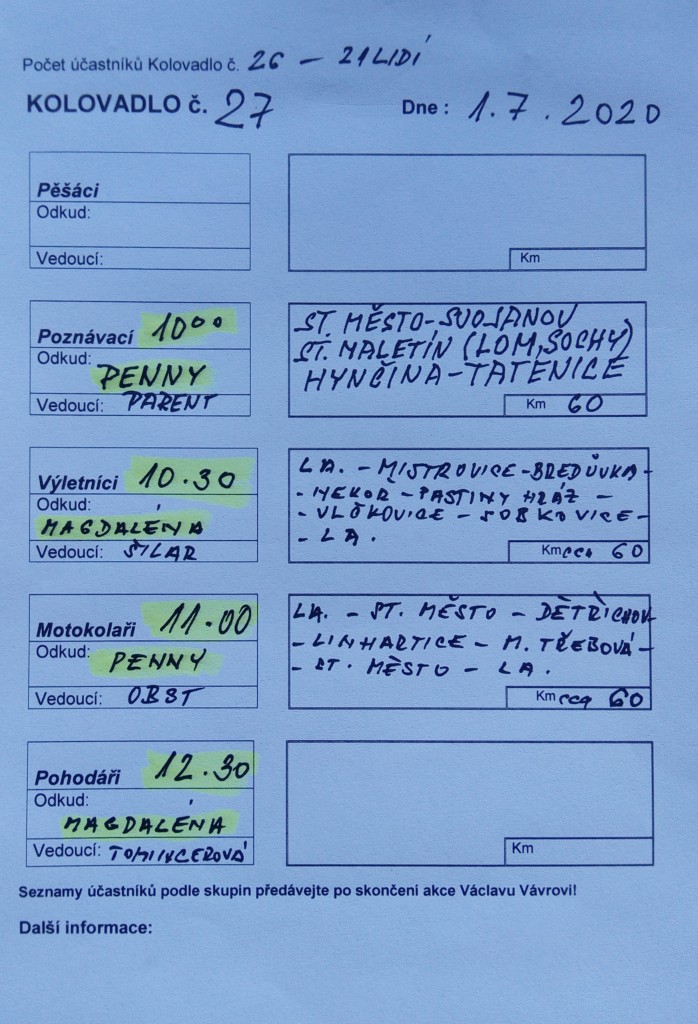 Počet účastníků Kolovadlo č. 26 – 21 LIDÍ
KOLOVADLO č. 27 Dne : 1.7.2020
Pěšáci
Odkud:
Vedoucí:
Km
Poznávací 10⁰⁰
Odkud:
PENNY
Vedoucí: PARENT
ST. MĚSTO-SVOJANOV
ST. MALETÍN (LOM, SOCHY)
HYNČINA-TATENICE
Km 60
Výletníci 10.30
Odkud:
MAGDALÉNA
Vedoucí: ŠILAR
LA. - MISTROVICE-BREDŮVKA-
- NEKOŘ - PASTINY HRÁZ -
- VLČKOVICE - SOBKOVICE-
- LA.
Km cca 60
Motokolaři 11.00
Odkud:
PENNY
Vedoucí: OBST
LA. - ST. MĚSTO - DĚTŘICHOV
- LINHARTICE - M. TŘEBOVÁ-
- ST. MĚSTO - LA.
Km cca 60
Pohodáři 12.30
Odkud:
MAGDALÉNA
Vedoucí:
Km
Seznamy účastníků podle skupin předávejte po skončení akce Václavu Vávrovi!
Další informace: